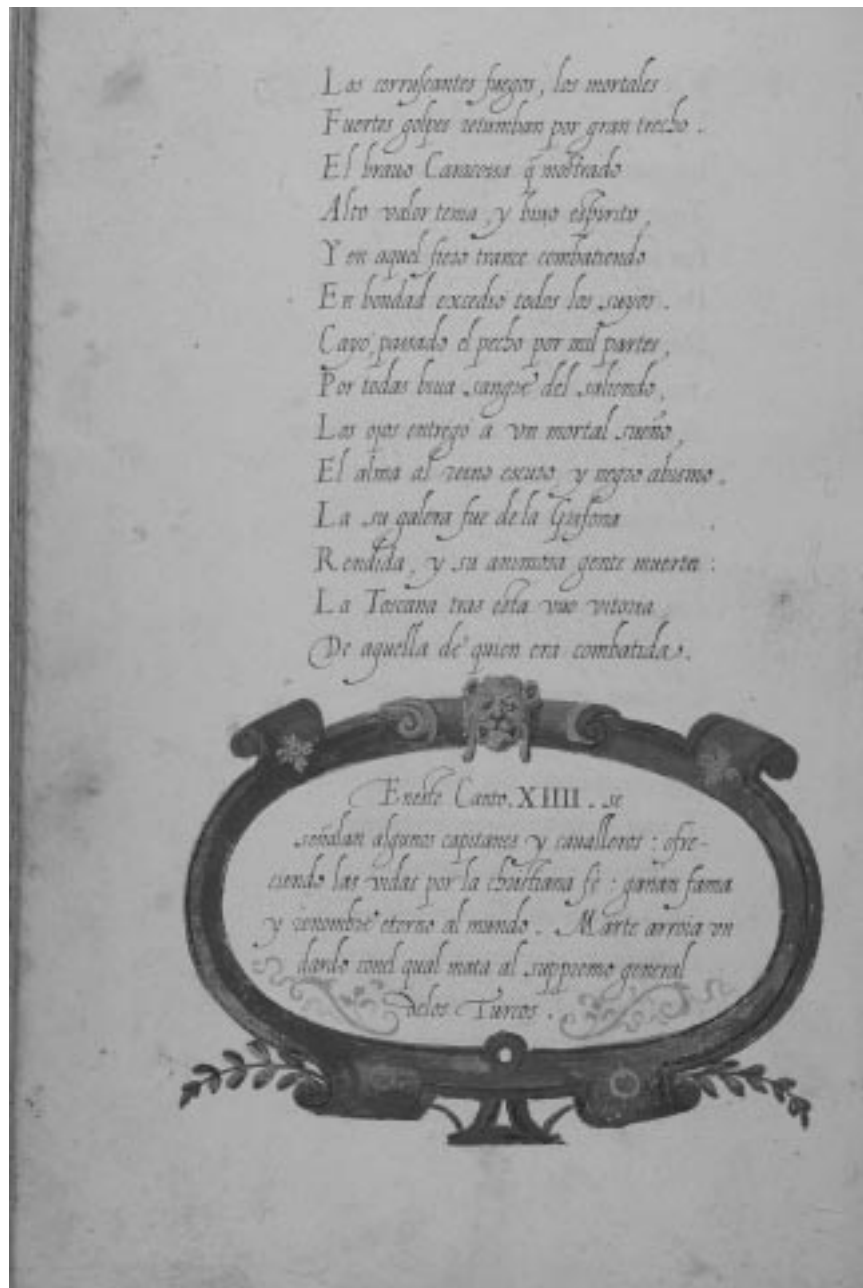 Los corruscantes fuegos, los mortales
Fuertes golpes retumban por gran trecho.
El brauo Caracossa q̃ mostrado
Alto valor tenia, y biuo espirito,
Y en aquel fiero trance combatiendo
En bondad excedio todos los suyos.
Cayo, passado el pecho por mil partes,
Por todas biua sangre del saliendo,
Los ojos entregó a vn mortal sueño,
El alma al reino escuro y negro abismo.
La su galera fue dela Grifona
Rendida, y su animosa gente muerta:
La Toscana tras esta vuo vitoria
De aquella de quien era combatida.
Eneste Canto. XIIII. se
señalan algunos capitanes y caualleros: ofre-
ciendo las vidas por la christiana fè: ganan fama
y renombre eterno al mundo. Marte arroia vn
dardo conel qual mata al suppremo general
delos Turcos.